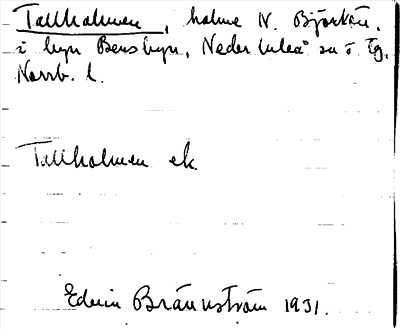 Tallholmen, holme N. Björkön,
i byn Bensbyn, Neder Luleå sn o tg.
Norrb. l.
Tallholmen ek.
Edvin Brännström 1931.